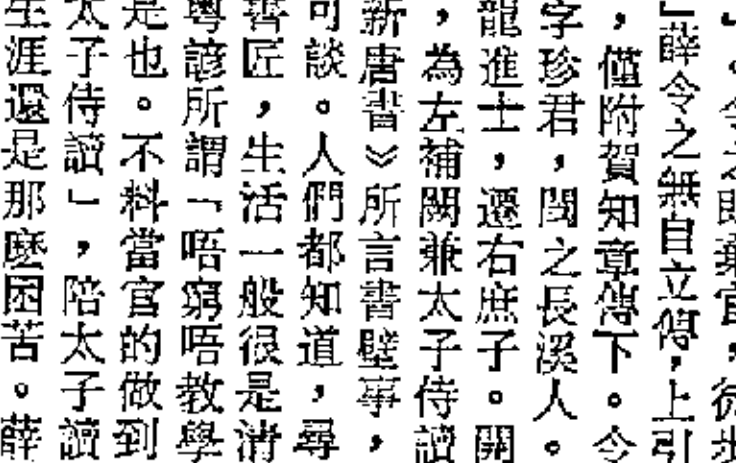 」。令之既棄官，徒步
」薛令之無自立傳，上引
，僅附賀知章傳下。令
字珍君，閩之長溪人。
龍進士，遷右庶子。開
，為左補闕兼太子侍讀
新唐書》所言書壁事，
可談。人們都知道，尋
書匠，生活一般很是清
粵諺所謂「唔窮唔教學
是也。不料當官的做到
太子侍讀」，陪太子讀
生涯還是那麼困苦。薛